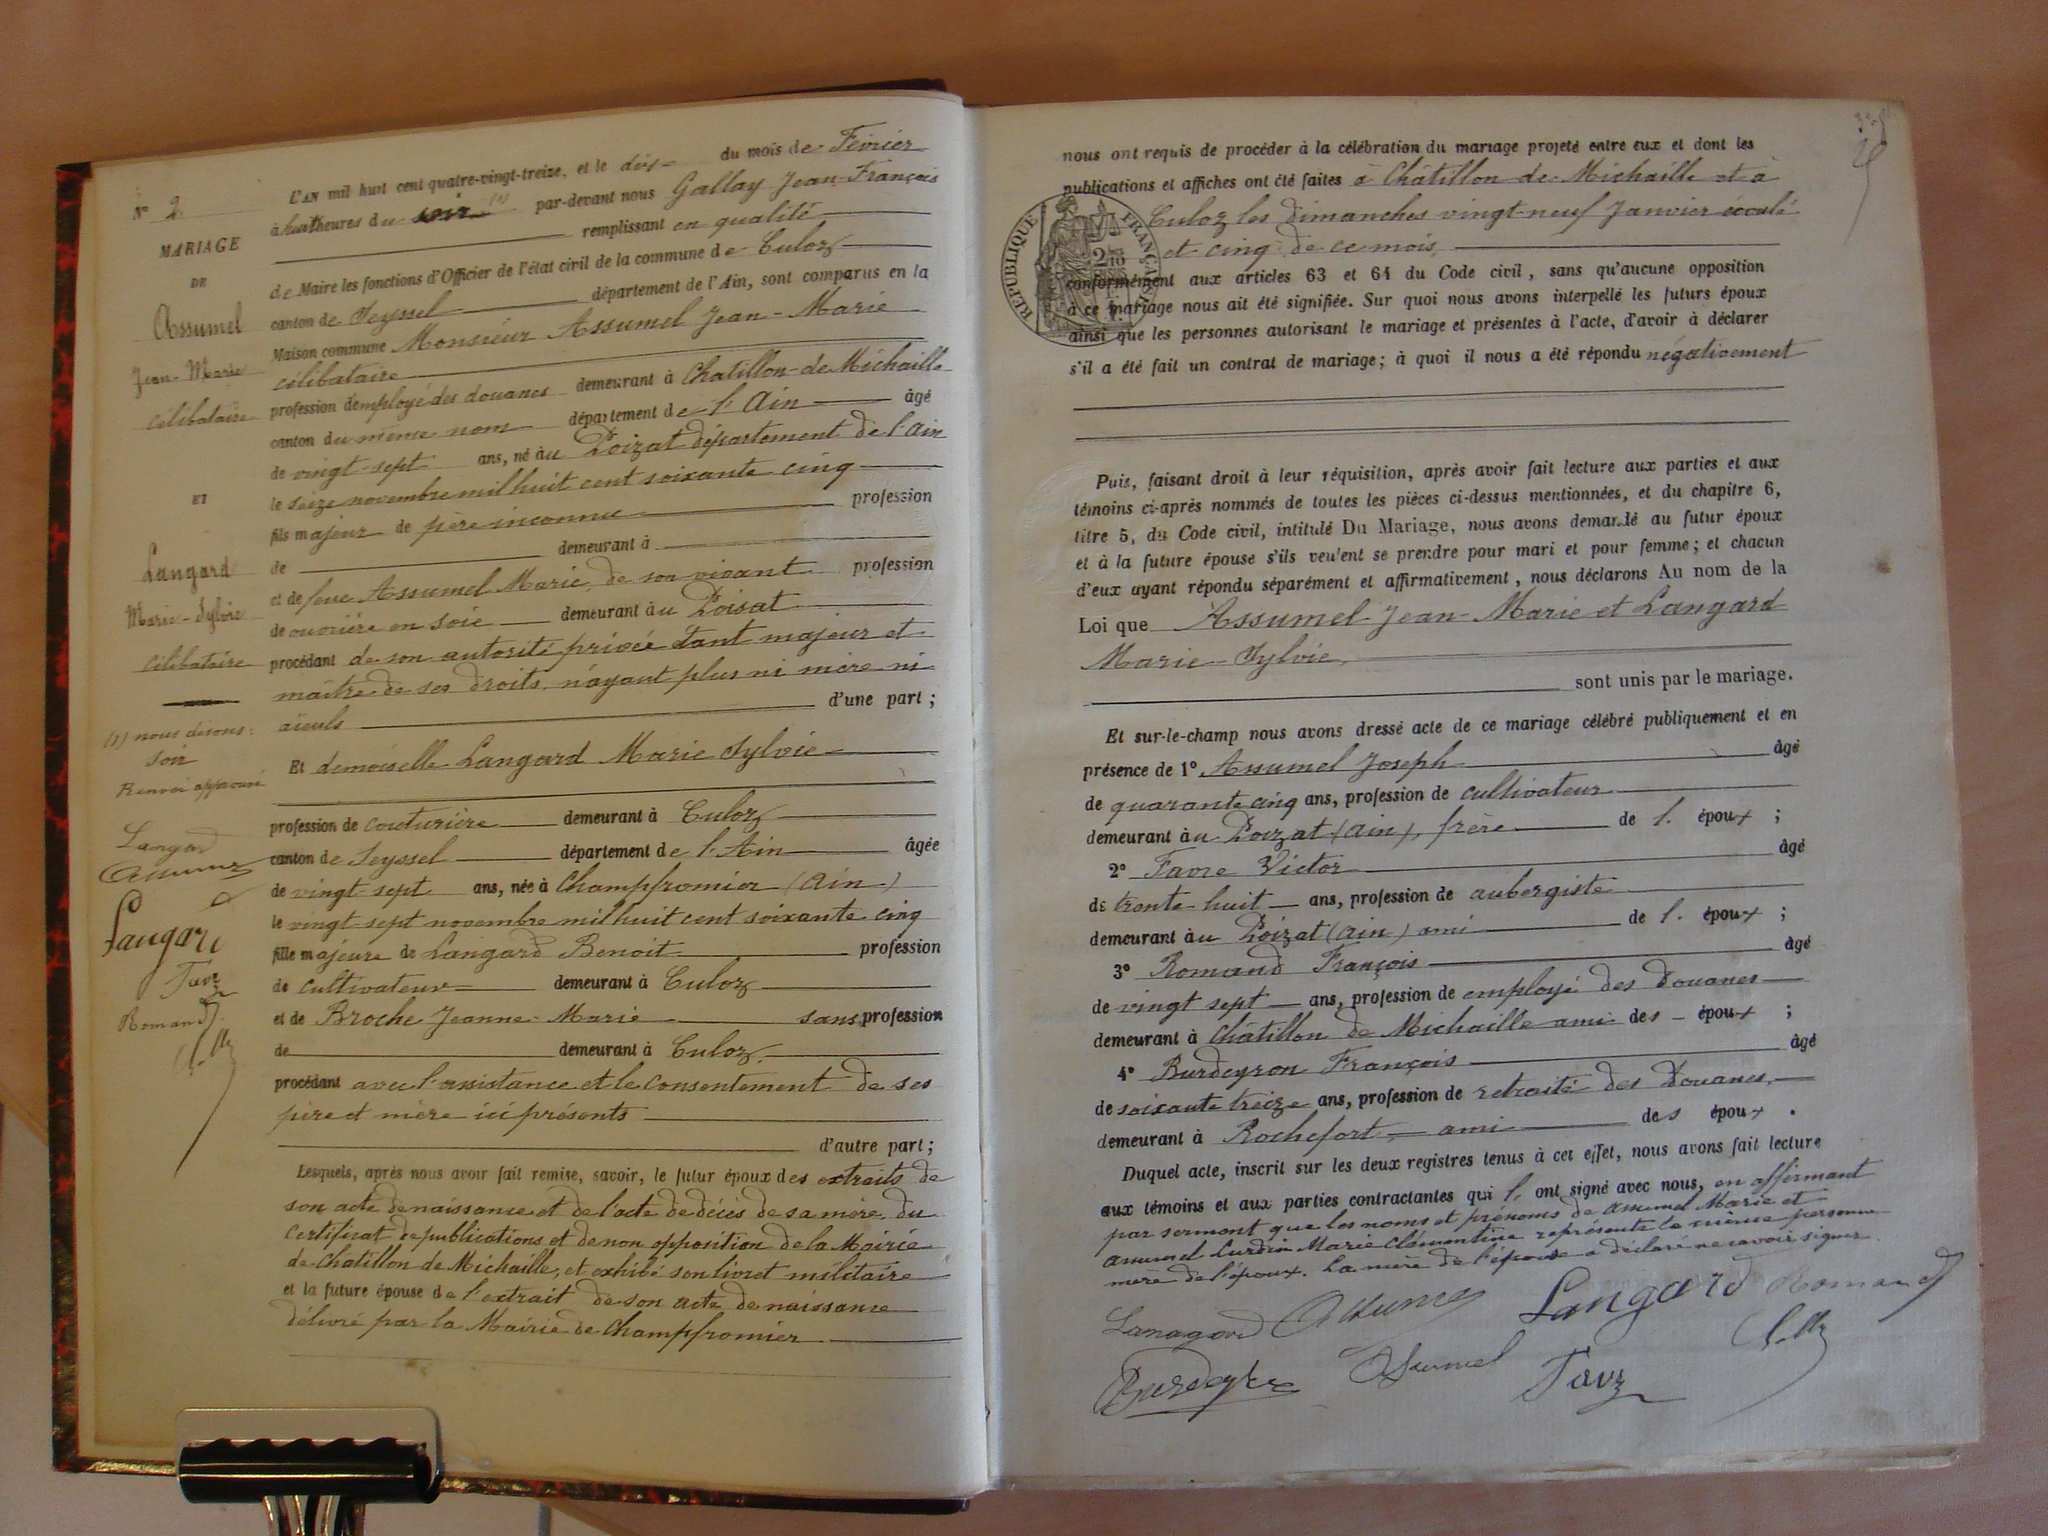 N° 2
MARIAGE
DE
Assumel
Jean-Marie
célibataire
ET
Langard
Marie-Sylvie
célibataire
(1) nous disons:
soir
Renvoi approuvé
Langard
Assumel
Langard
Favre
Romand
L'AN mil huit cent quatre-vingt-treize, et le dix du mois de Février
à huit heures du soir (1) par-devant nous Gallay Jean-François
remplissant en qualité
de Maire les fonctions d'Officier de l'état civil de la commune de Culoz
canton de Seyssel département de l'Ain, sont comparus en la
Maison commune Monsieur Assumel Jean-Marie
célibataire
profession d'employé des douanes demeurant à Chatillon-de-Michaille
canton du même nom département de l'Ain âgé
de vingt-sept ans, né au Poizat département de l'Ain
le seize novembre mil huit cent soixante cinq
fils majeur de père inconnu profession
de demeurant à
et de feue Assumel Marie, de son vivant profession
de ouvrière en soie demeurant au Poisat
procédant de son autorité privée étant majeur et
maître de ses droits n'ayant plus ni mère ni
aïeuls d'une part ;
Et demoiselle Langard Marie Sylvie
profession de couturière demeurant à Culoz
canton de Seyssel département de l'Ain âgée
de vingt sept ans, née à Champfromier (Ain)
le vingt-sept novembre mil huit cent soixante cinq
fille majeure de Langard Benoit profession
de cultivateur demeurant à Culoz
et de Broche Jeanne-Marie sans profession
de demeurant à Culoz.
procédant avec l'assistance et le consentement de ses
père et mère ici présents
d'autre part ;
Lesquels, après nous avoir fait remise, savoir, le futur époux des extraits de
son acte de naissance et de l'acte de décès de sa mère, du
certificat de publications et de non opposition de la Mairie
de Chatillon de Michaille, et exhibé son livret militaire
et la future épouse de l'extrait de son acte de naissance
délivré par la Mairie de Champfromier
nous ont requis de procéder à la célébration du mariage projeté entre eux et dont les
publications et affiches ont été faites à Châtillon de Michaille et à
Culoz les dimanches vingt-neuf Janvier écoulé
et cinq de ce mois,
RÉPUBLIQUE FRANÇAISE
conformément aux articles 63 et 64 du Code civil, sans qu'aucune opposition
à ce mariage nous ait été signifiée. Sur quoi nous avons interpellé les futurs époux
ainsi que les personnes autorisant le mariage et présentes à l'acte, d'avoir à déclarer
s'il a été fait un contrat de mariage ; à quoi il nous a été répondu négativement
Puis, faisant droit à leur réquisition, après avoir fait lecture aux parties et aux
témoins ci-après nommés de toutes les pièces ci-dessus mentionnées, et du chapitre 6,
titre 5, du Code civil, intitulé Du Mariage, nous avons demandé au futur époux
et à la future épouse s'ils veulent se prendre pour mari et pour femme ; et chacun
d'eux ayant répondu séparément et affirmativement, nous déclarons Au nom de la
Loi que Assumel Jean-Marie et Langard
Marie-Sylvie,
sont unis par le mariage.
Et sur-le-champ nous avons dressé acte de ce mariage célébré publiquement et en
présence de 1° Assumel Joseph âgé
de quarante cinq ans, profession de cultivateur
demeurant au Poizat (Ain), frère de l. époux ;
2° Favre Victor âgé
de trente-huit ans, profession de aubergiste
demeurant au Poizat (Ain) ami de l. époux ;
3° Romand François âgé
de vingt sept ans, profession de employé des Douanes
demeurant à Châtillon de Michaille ami des époux ;
4° Burdeyron François âgé
de soixante treize ans, profession de retraité des Douanes,
demeurant à Rochefort, ami des époux .
Duquel acte, inscrit sur les deux registres tenus à cet effet, nous avons fait lecture
aux témoins et aux parties contractantes qui l' ont signé avec nous, en affirmant
par serment que les noms et prénoms de Assumel Marie et
Assumel Marie Clémentine représente la même personne
mère de l'époux. La mère de l'épouse a déclaré ne savoir signer.
Lanagard Assumel Langard Romand
Burdeyron Assumel Favre